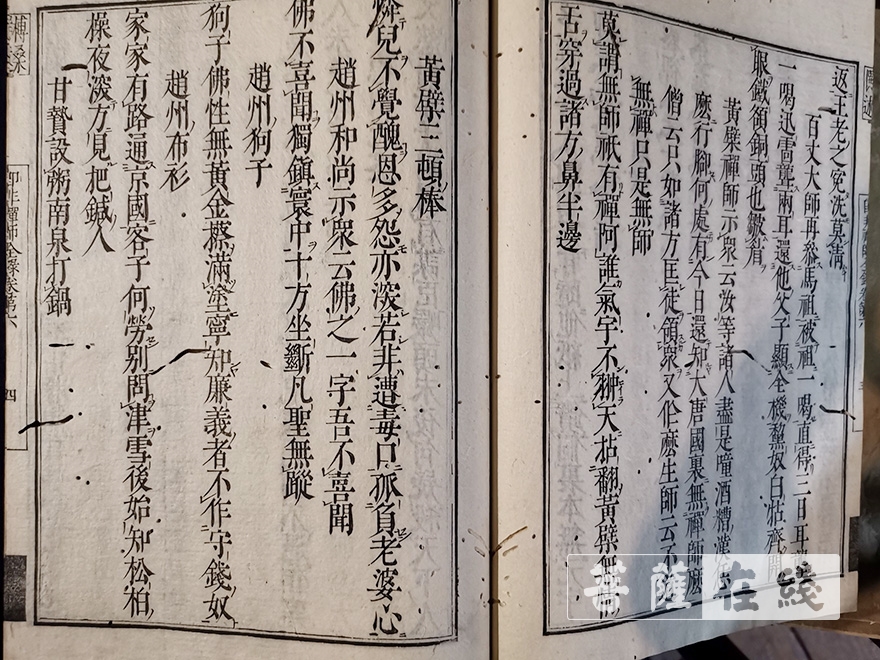 返王老之冤洗莫清
百丈大師再參馬祖被祖一喝直得三日耳
一喝迅雷聾兩耳還他父子顯全機黧奴白牯齊開
眼鐵額銅頭也皺眉
黃檗禪師示衆云汝等諸人盡是噇酒糟漢
麼行腳何處有今日還知大唐國裏無禪師麼
僧云只如諸方匡徒領衆又作麼生師云不
無禪只是無師
莫謂無師祇有禪阿誰氣宇不獅天拈翻黃檗無
舌穿過諸方鼻半邊
黃檗三頓棒
憐兒不覺醜恩多怨亦深若非遭毒口孤負老婆心
趙州和尚示衆云佛之一字吾不喜聞
佛不喜聞獨鎮寰中十方坐斷凡聖無蹤
趙州狗子
狗子佛性無黃金撩滿塗寧知廉義者不作守錢奴
趙州布衫
家家有路通京國客子何勞別問津雪後始知松柏
操夜深方見把鍼人
甘贄設粥南泉打鍋
即非禪師全錄卷第六
四
菩薩在线